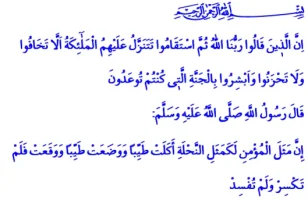 بِسْمِ اللهِ الرَّحْمٰنِ الرَّحِيمِ
اِنَّ الَّذِينَ قَالُوا رَبُّنَا اللهُ ثُمَّ اسْتَقَامُوا تَتَنَزَّلُ عَلَيْهِمُ الْمَلٰٓئِكَةُ اَلَّا تَخَافُوا
وَلَا تَحْزَنُوا وَاَبْشِرُوا بِالْجَنَّةِ الَّتِي كُنْتُمْ تُوعَدُونَ
قَالَ رَسُولُ اللهِ صَلَّى اللهُ عَلَيْهِ وَسَلَّمَ:
إِنَّ مَثَلَ الْمُؤْمِنِ لَكَمَثَلِ النَّحْلَةِ أَكَلَتْ طَيِّبًا وَوَضَعَتْ طَيِّبًا وَوَقَعَتْ فَلَمْ
تَكْسِرْ وَلَمْ تُفْسِدْ